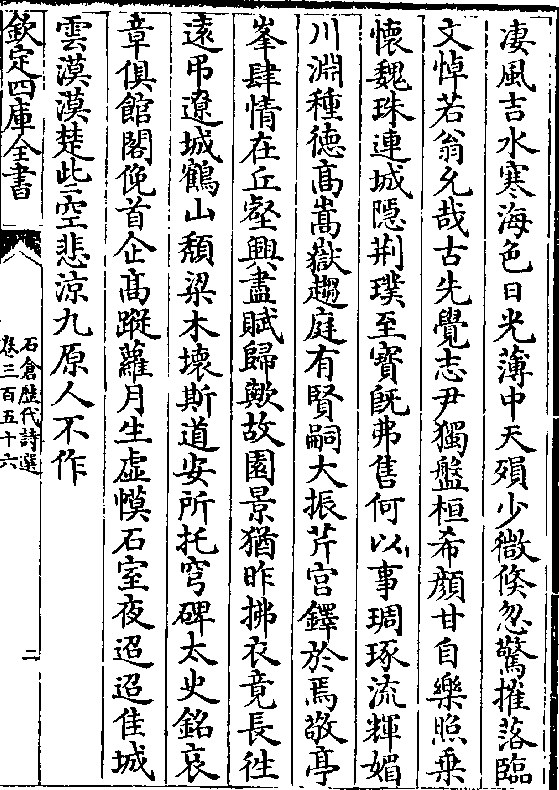 凄風吉水寒海色日光薄中天殞少微倐忽驚摧落臨
文悼若翁允哉古先覺志尹獨盤桓希顔甘自樂照乗
懐魏珠連城隠荆璞至寳旣弗售何以事琱琢流輝媚
川淵種徳髙嵩嶽趨庭有賢嗣大振芹宫鐸於焉敬亭
峯肆情在丘壑興盡賦歸歟故園景猶昨拂衣竟長徃
逺弔遼城鶴山頽梁木壞斯道安所托穹碑太史銘哀
章俱館閣俛首企髙蹤蘿月生虚幙石室夜迢迢佳城
雲漠漠楚些空悲凉九原人不作
欽定四庫全書
石倉歴代詩選
卷三百五十六
二